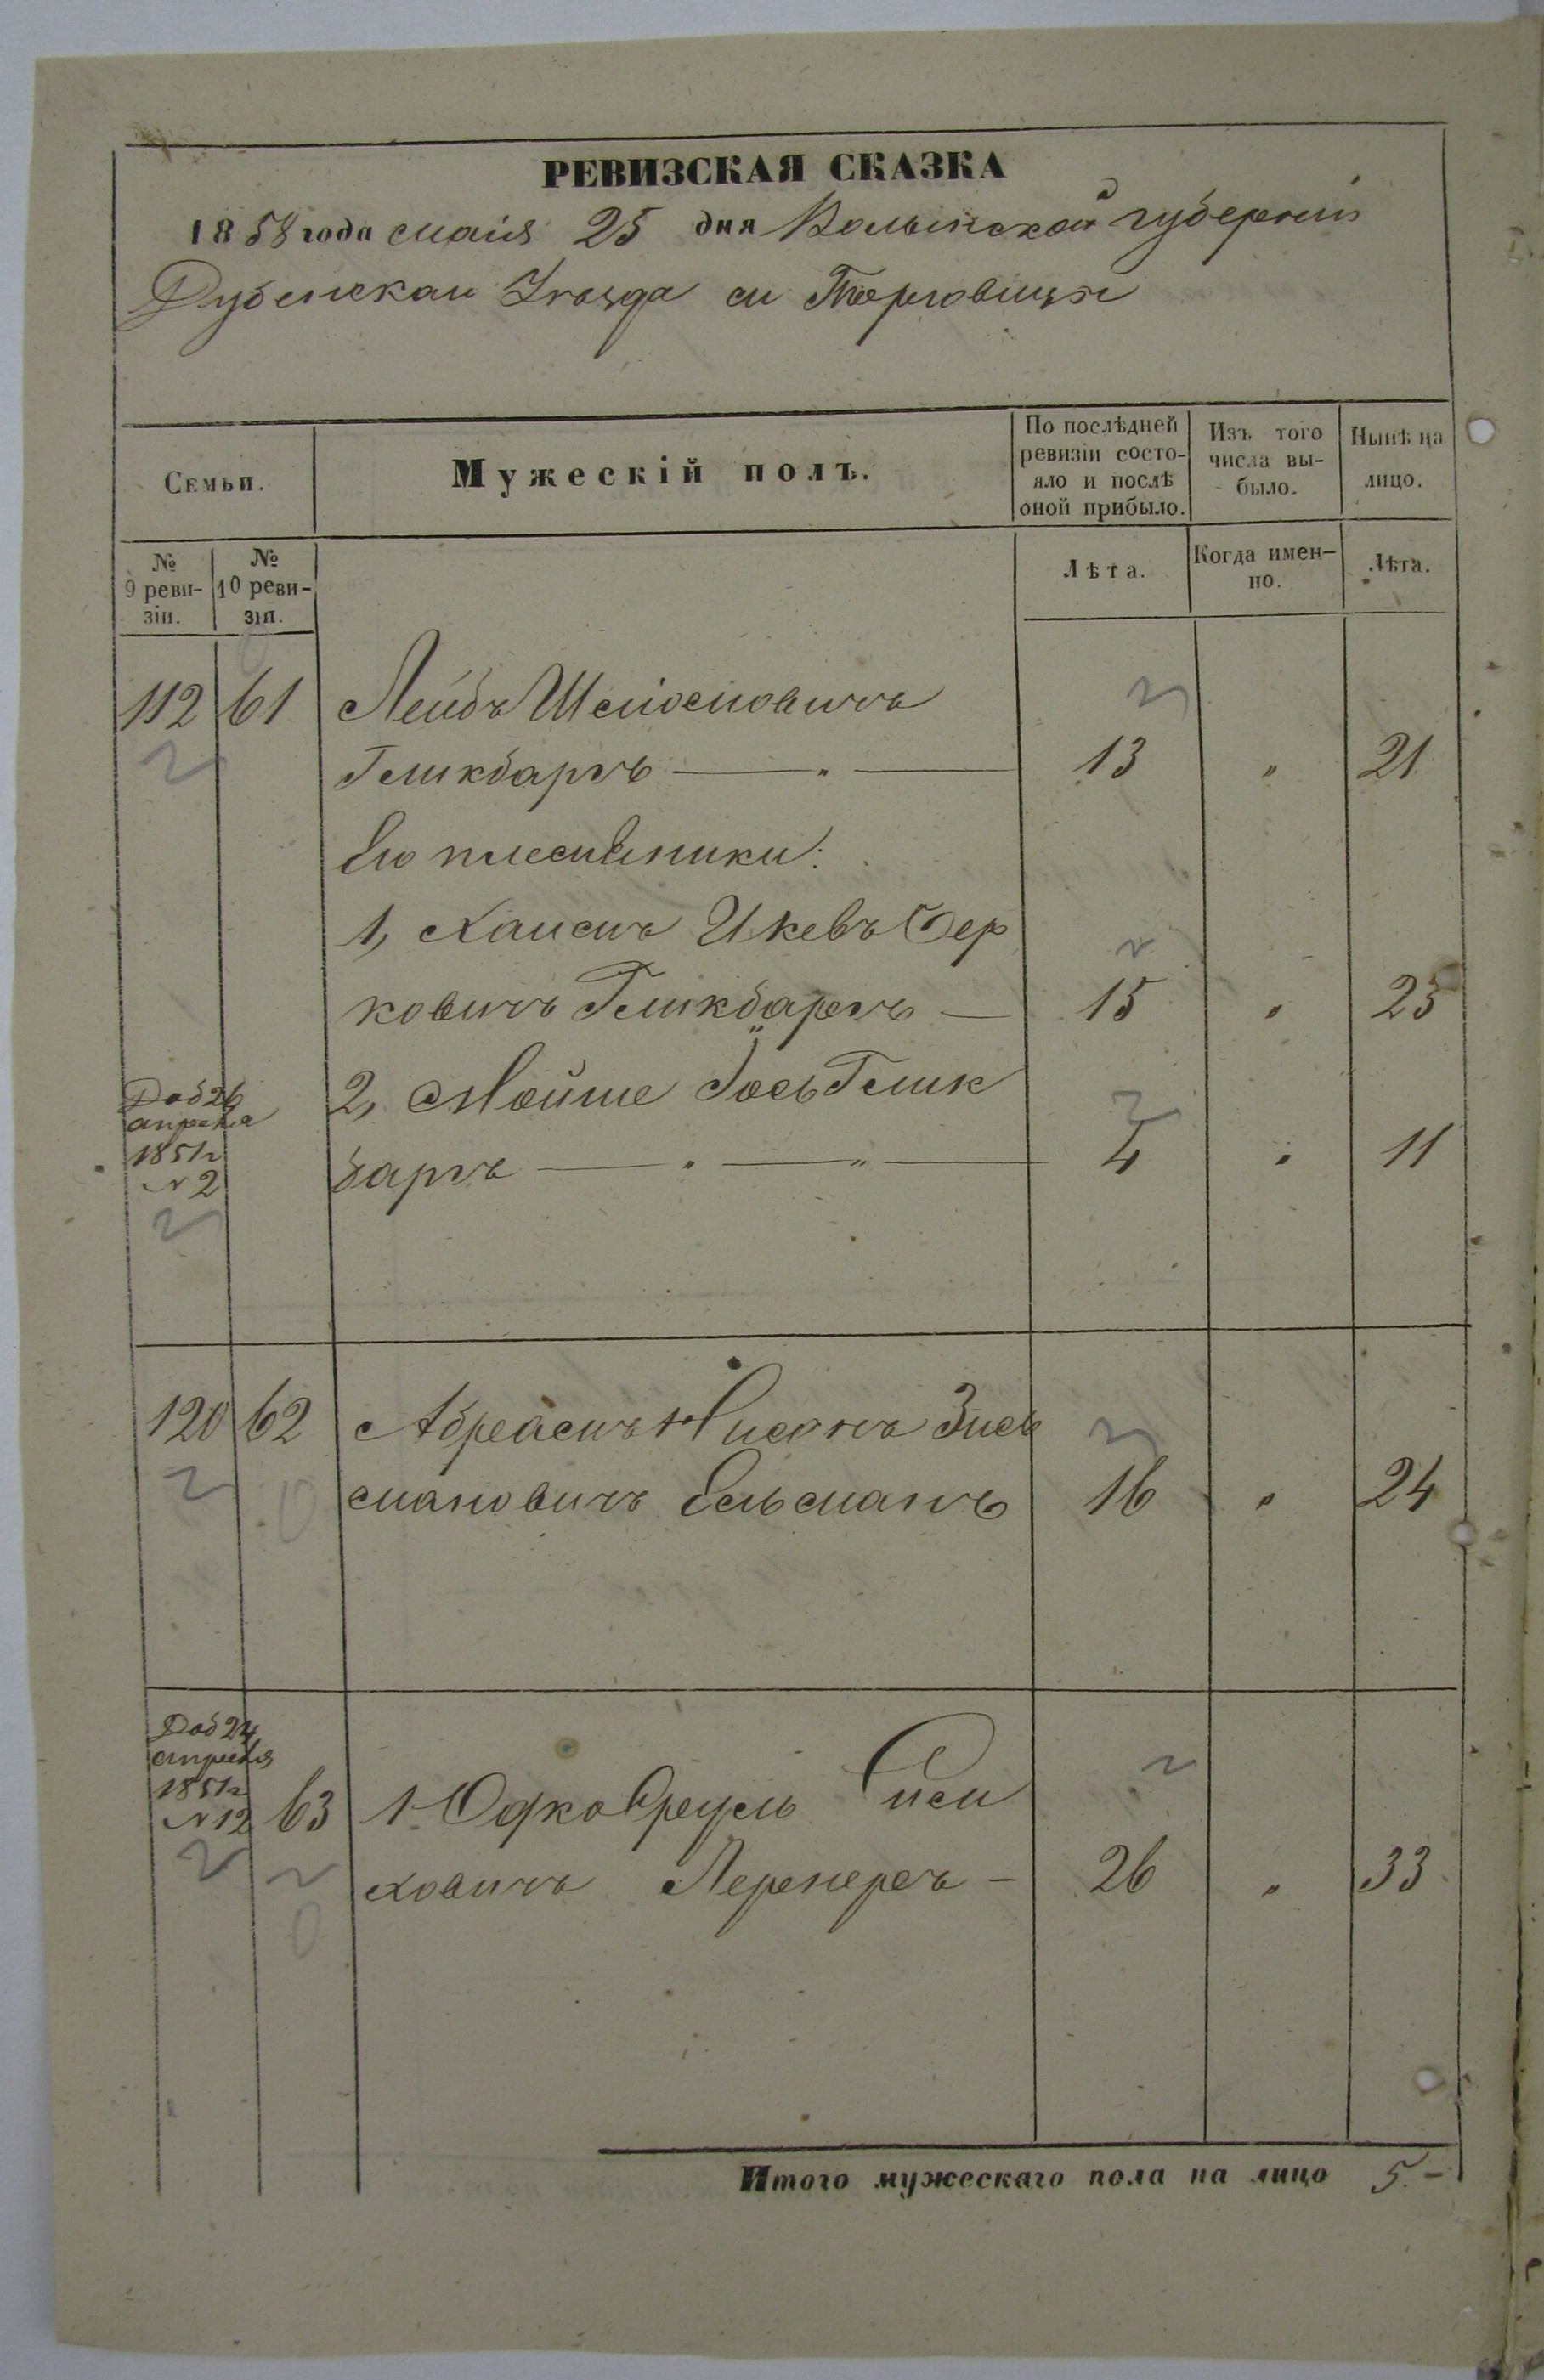 РЕВИЗСКАЯ СКАЗКА
1858 года маія 25 дня Волынской губерніи
Дубенскаго Уѣзда м Торговицы
Семьи.
Мужескій полъ.
По послѣдней ревизіи состо-
яло и послѣ
оной прибыло.
Изъ того
числа вы-
было.
Нынѣ на
лицо.
№
9 реви-
зіи.
№
10 реви-
зіи.
Лѣта.
Когда имен-
но.
Лѣта.
112 61 Лейбъ Шліомовичъ
Гликбаргъ — " — 13 " 21
Его племянники:
1, Хаимъ Икевъ Бер
ковичъ Гликбаргъ — 15 " 23
Доб 26
апрѣля
1851 г
№ 2
2, Мойше Іось Глик
баргъ — " — " — 4 " 11
120 62 Абрамъ Нисонъ Зись
мановичъ Ельманъ 16 " 24
Доб 24
апрѣля
1851 г
№ 12
63 Юдко Сруль
ховичъ Перенеръ — 26 " 33
Итого мужескаго пола на лицо 5. -